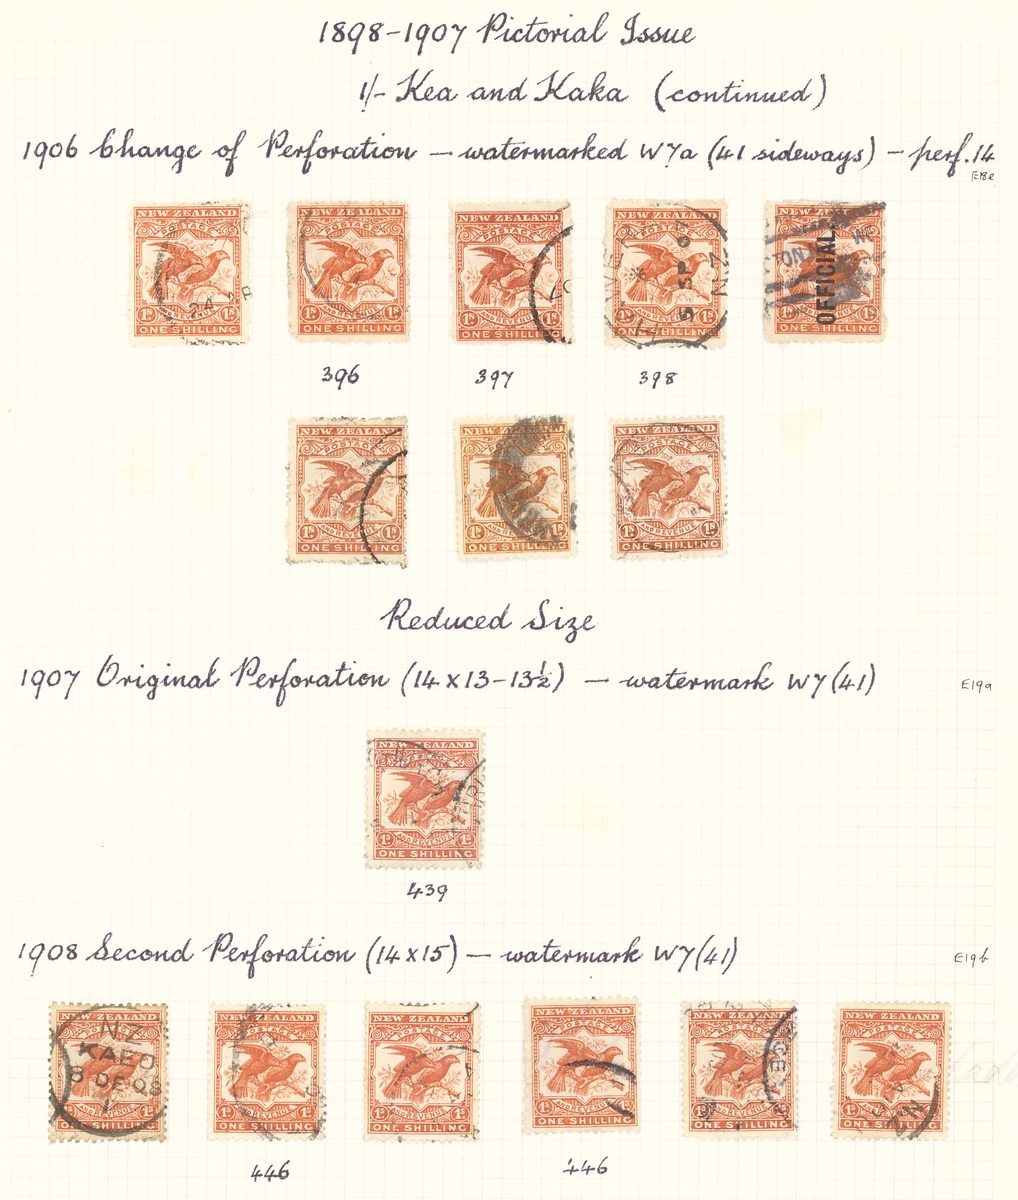 1898-1907 Pictorial Issue
1/- Kea and Kaka (continued)
1906 Change of Perforation — watermarked W7a (41 sideways) — perf. 14
E18e
NEW ZEALAND NEW ZEALAND NEW ZEALAND NEW ZEALAND NEW ZEALAND
POSTAGE POSTAGE POSTAGE POSTAGE
OFFICIAL.
24 5 SP 07 NZ
AND REVENUE AND REVENUE AND REVENUE AND REVENUE
1s 1s 1s 1s 1s 1s 1s 1s 1s 1s
ONE SHILLING ONE SHILLING ONE SHILLING ONE SHILLING ONE SHILLING
396 397 398
NEW ZEALAND NEW ZEALAND NEW ZEALAND
POSTAGE POSTAGE POSTAGE
AND REVENUE AND REVENUE AND REVENUE
1s 1s 1s 1s 1s 1s
ONE SHILLING ONE SHILLING ONE SHILLING
Reduced Size
1907 Original Perforation (14 x 13-13½) — watermark W7 (41)
E19a
NEW ZEALAND
AND REVENUE
1s 1s
ONE SHILLING
439
1908 Second Perforation (14 x 15) — watermark W7 (41)
E19b
NEW ZEALAND NEW ZEALAND NEW ZEALAND NEW ZEALAND NEW ZEALAND NEW ZEALAND
POSTAGE POSTAGE POSTAGE POSTAGE POSTAGE
N.Z.
KAEO
8 DE 08
AND REVENUE AND REVENUE AND REVENUE AND REVENUE AND REVENUE AND REVENUE
1s 1s 1s 1s 1s 1s 1s 1s 1s 1s 1s 1s
ONE SHILLING ONE SHILLING ONE SHILLING ONE SHILLING ONE SHILLING ONE SHILLING
446 446